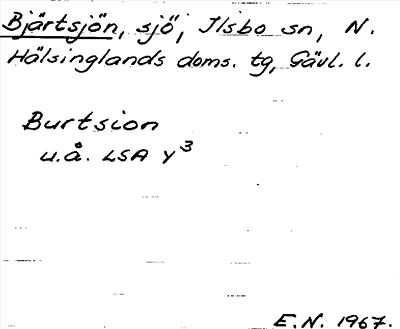 Bjärtsjön, sjö, Ilsbo sn, N.
Hälsinglands doms. tg, Gävl. l.
Burtsion
u.å. LSA Y³
E.N. 1967.